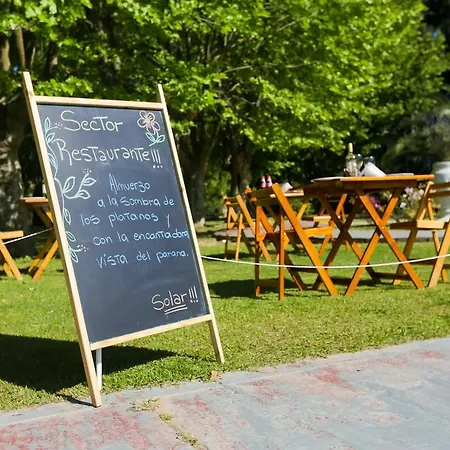 Sector
Restaurante!!!
Almuerzo
a la sombra de
los platanos y
con la encantadora
vista del parana.
Solar!!!